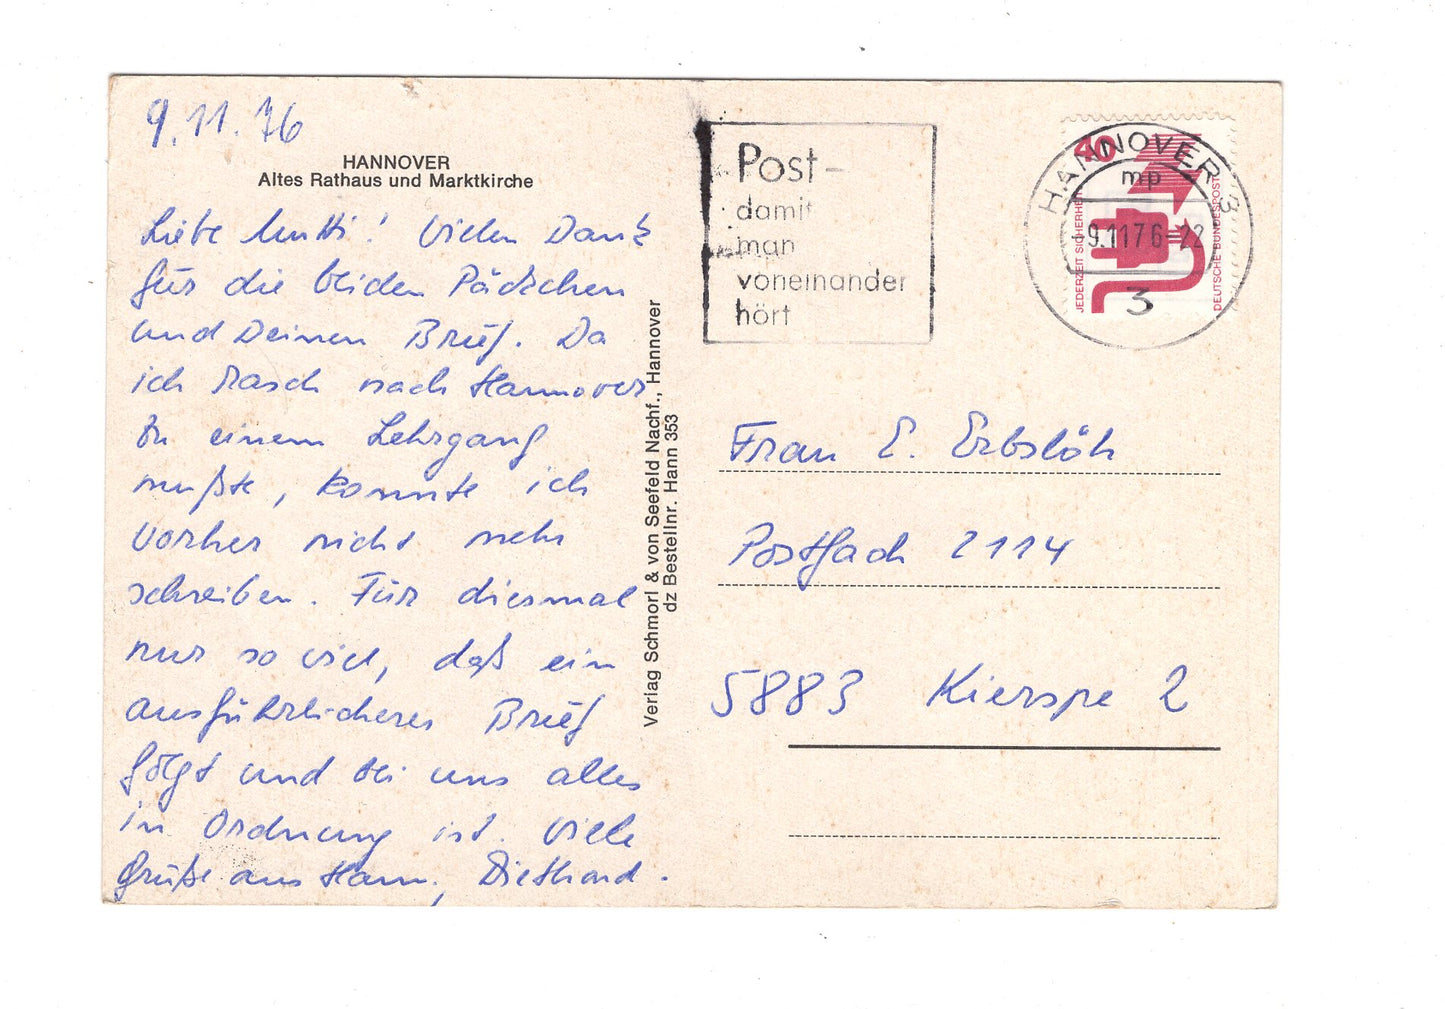 9.11.76
HANNOVER
Altes Rathaus und Marktkirche
Liebe Mutti! Vielen Dank
für die beiden Päckchen
und Deinen Brief. Da
ich rasch nach Hannover
zu einem Lehrgang
mußte, konnte ich
vorher nicht mehr
schreiben. Für diesmal
nur so viel, daß ein
ausführlicherer Brief
folgt und bei uns alles
in Ordnung ist. Viele
Grüße aus Hann., Diethard.
Verlag Schmorl & von Seefeld Nachf., Hannover
dz Bestellnr. Hann 353
Post-
damit
man
voneinander
hört
HANNOVER 3
mp
-9.11.76-22
3
40
JEDERZEIT SICHERHEIT
DEUTSCHE BUNDESPOST
Frau E. Erbslöh
Postfach 2114
5883 Kierspe 2